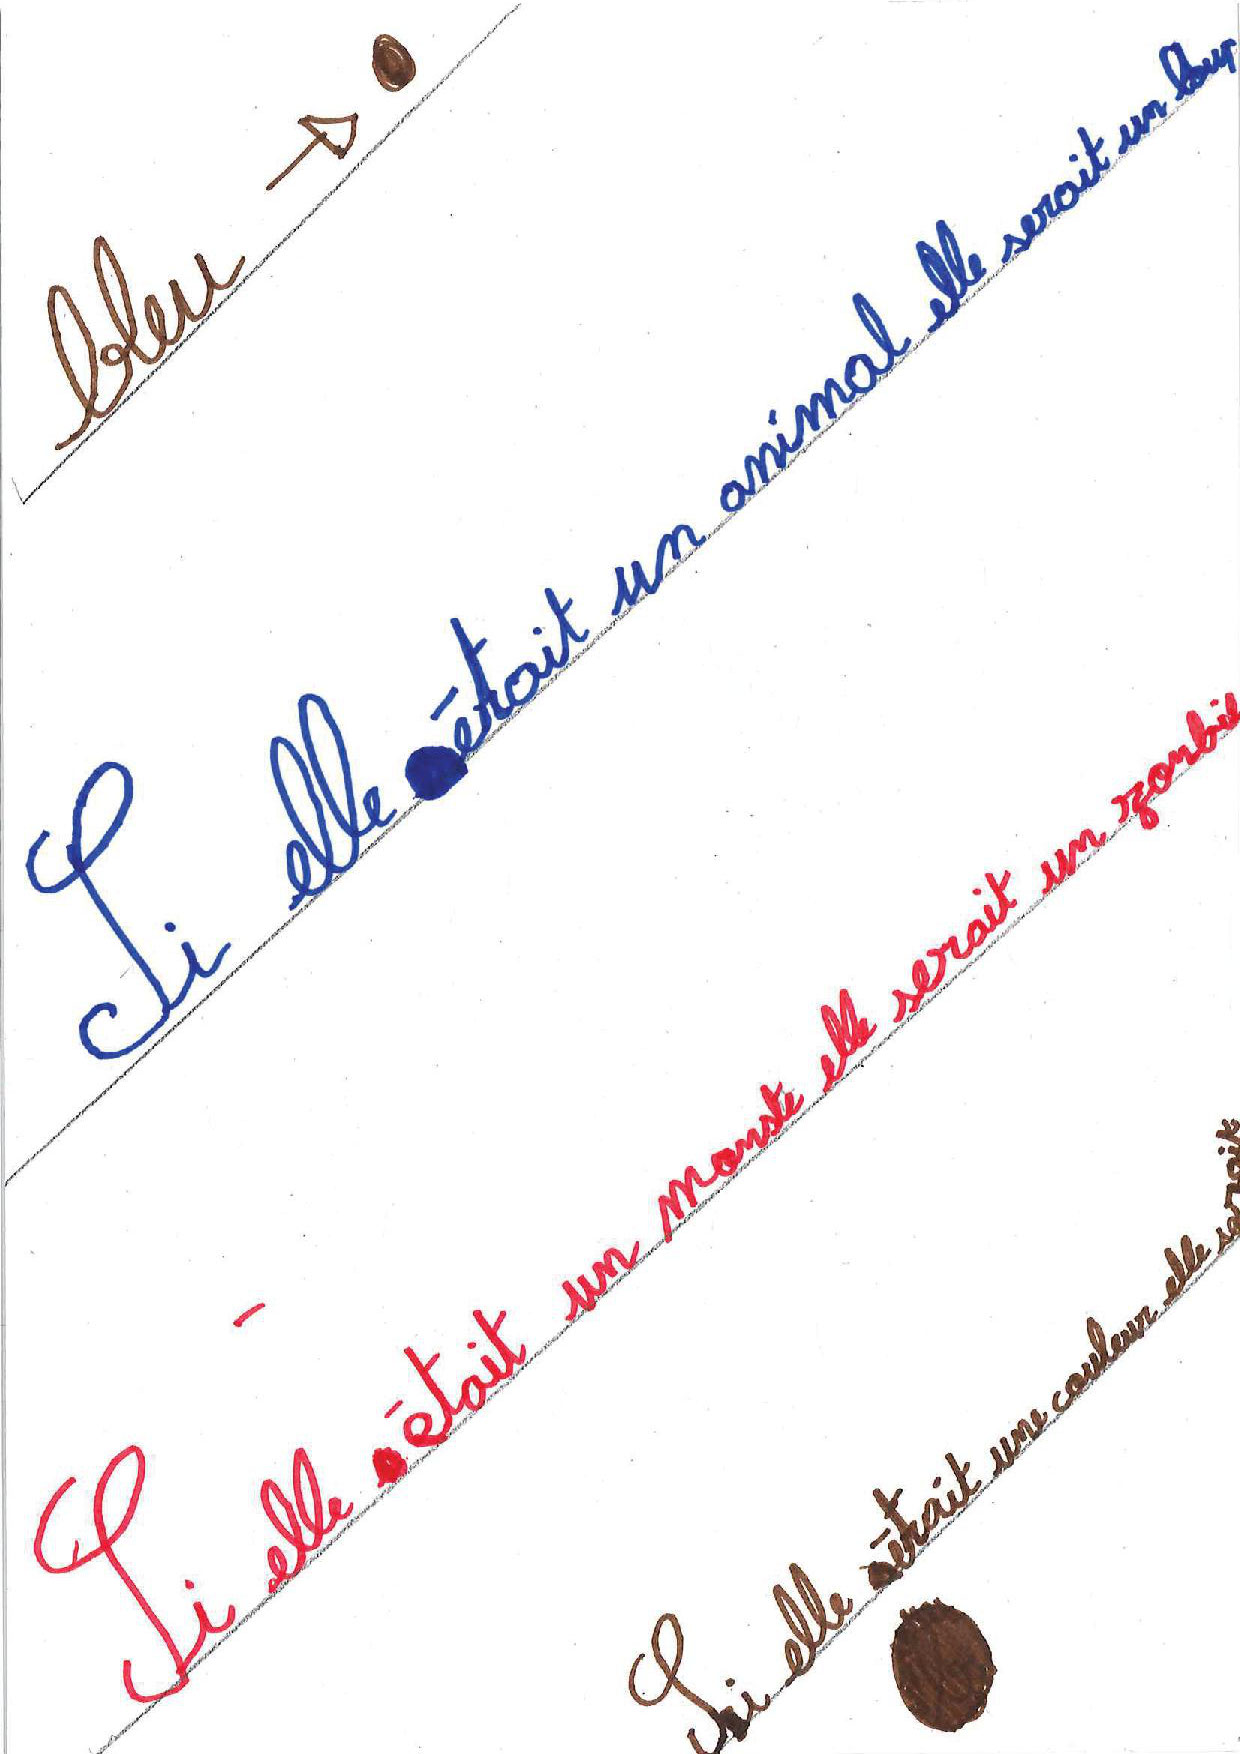 bleu
Si elle était un animal elle serait un loup
Si elle était un monste elle serait un zonbie
Si elle était une couleur elle serait